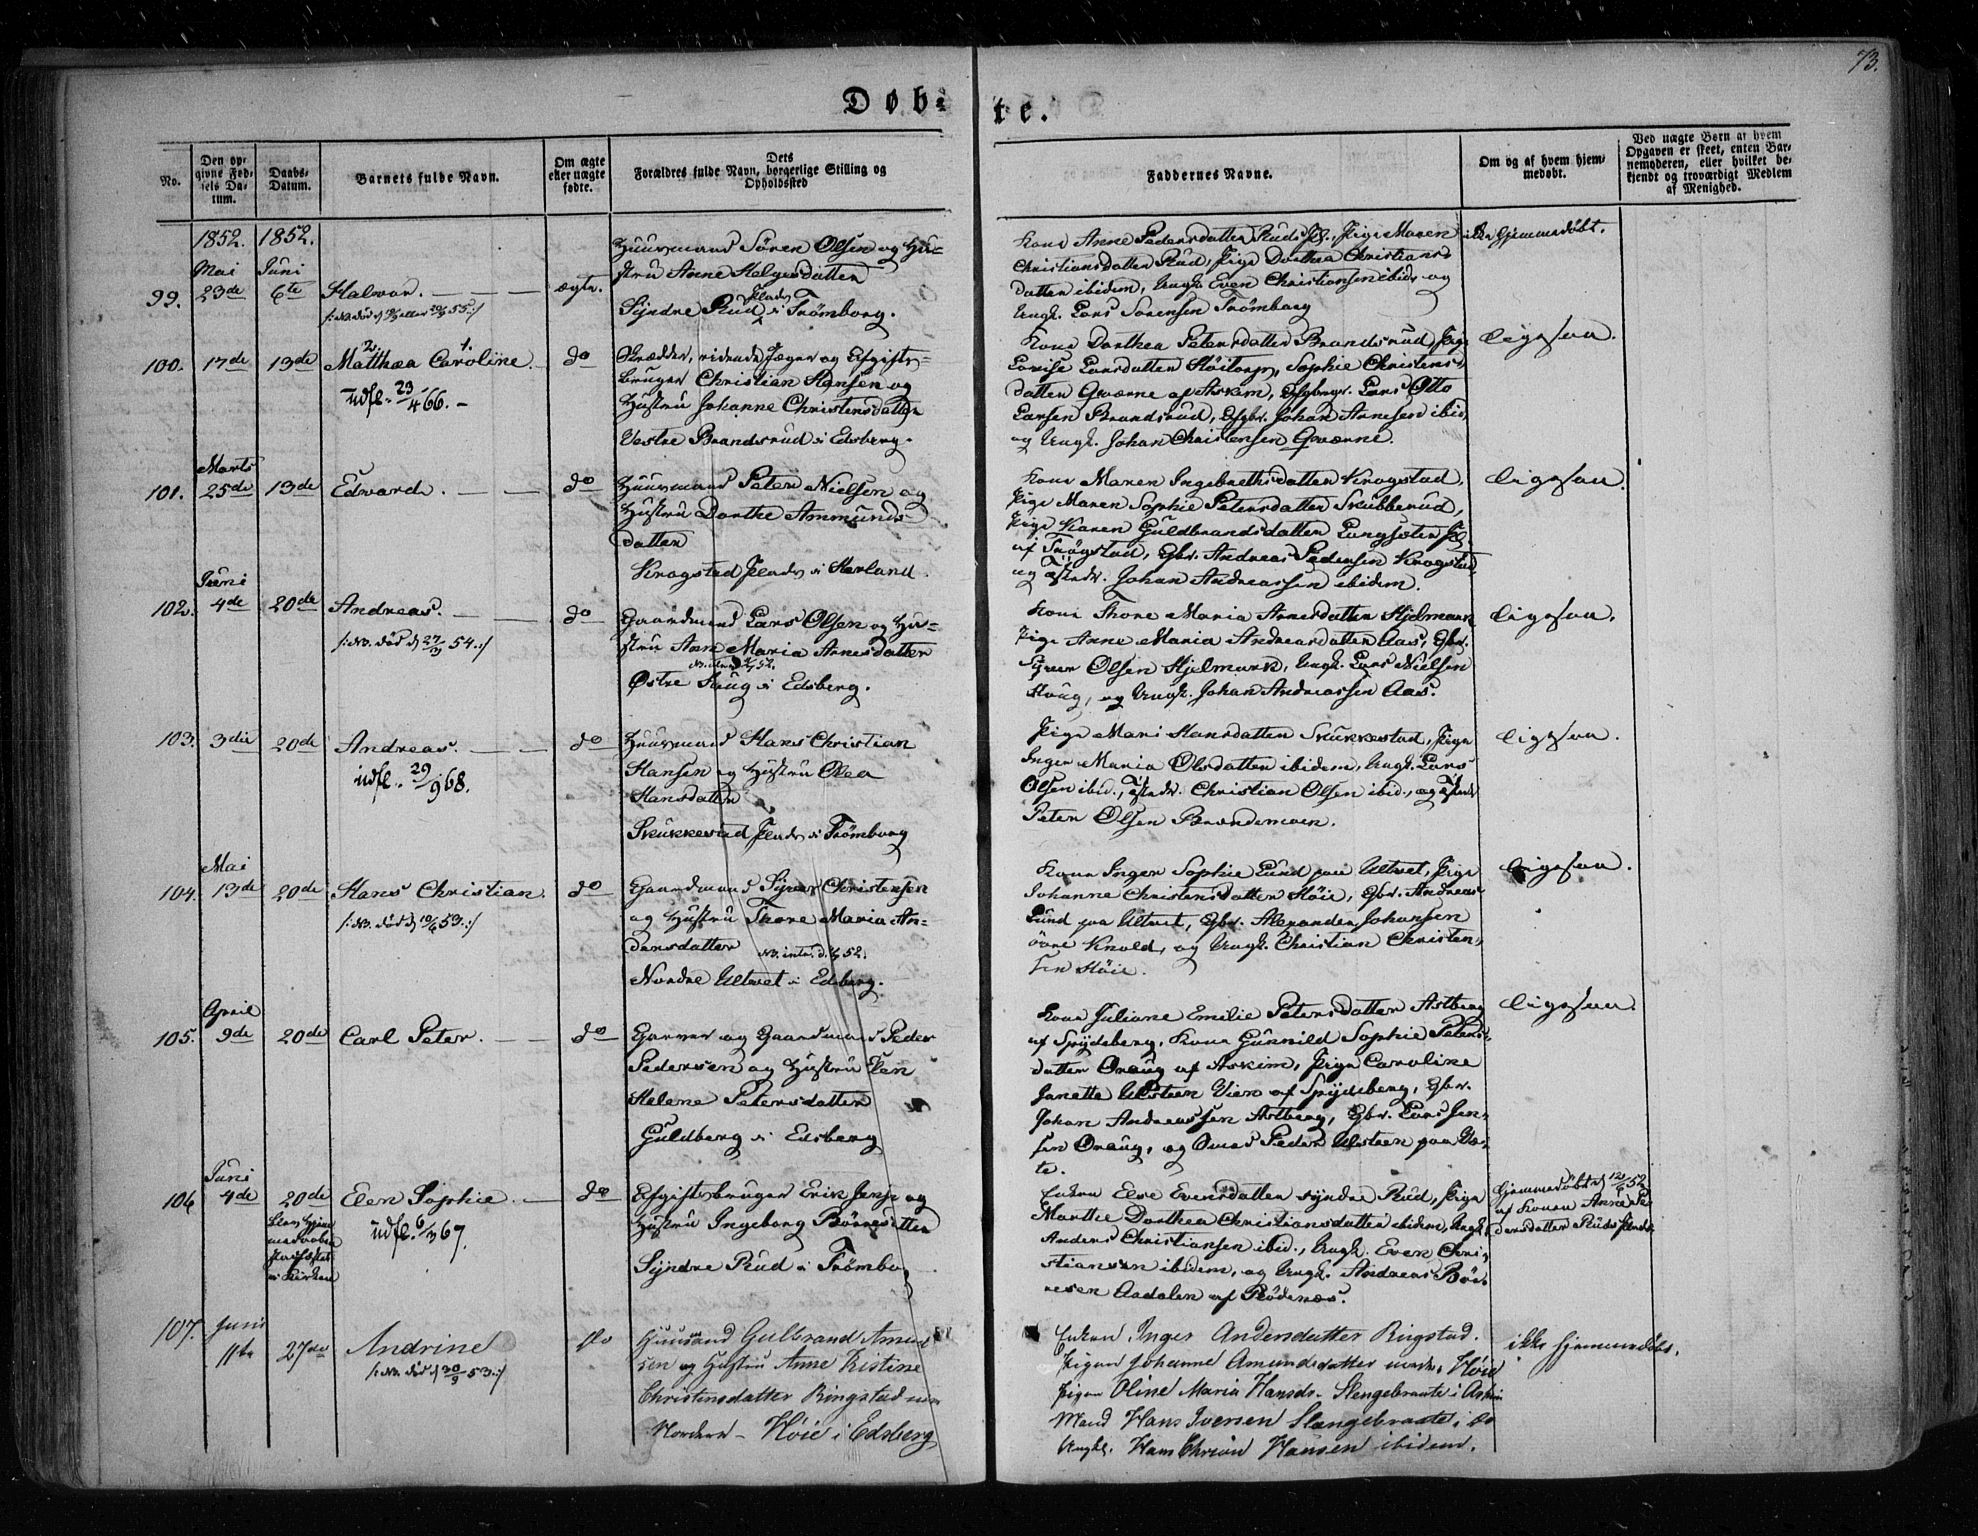 73.
Døb-te.
No.
Den op-
givne Fød-
sels Da-
tum.
Daabs-
Datum.
Barnets fulde Navn.
Om ægte
eller uægte
fødte.
Dets
Forældres fulde Navn, borgerlige Stilling og
Opholdssted
Faddernes Navne.
Om og af hvem hjem-
medøbt.
Ved uægte Børn af hvem
Opgaven er skeet, enten Bar-
nemoderen, eller hvilket be-
kjendt og troværdigt Medlem
af Menighed.
1852. 1852.
Mai Juni
99. 23de 6te Halvor. ægte.
Huusmand Søren Olsen og Hu-
stru Anne Helgesdatter
Syndre Rud Plads i Trømborg.
Kone Anne Pedersdatter Ruds Pl., Pige Maren
Christiansdatter Rud, Pige Dorthea Christians
datter ibidem, Ungk. Even Christiansen ibid. og
Ungk. Lars Sørensen Trømborg
ikke hjemmedøbt.
100. 17de 13de Matthæa Caroline. do
2. 1.
udfl. 23/4 66.
Skrædder, ridende Jæger og Afgifts-
bruger Christian Hansen og
Hustru Johanne Christensdatter
Vestre Brandsrud i Edsberg.
Kone Dorthea Petersdatter Brandsrud, Pige
Lovise Larsdatter Høitorp, Sophie Christens-
datter Qværne af Askim, Lars Otto
Larsen Brandsrud, Johan Arnesen ibid.
og Ungk. Johan Christensen Qværne.
ligesaa.
Marts
101. 25de 13de Edvard. do
Huusmand Peter Nielsen og
Hustru Dorthe Ammunds
datter
Krogstad Plads i Herland.
Kone Maren Ingebrethsdatter Krogstad,
Pige Maren Sophie Petersdatter Skubberud,
Pige Karen Guldbrandsdatter Langsæter Pl.
af Trøgstad, Gbr. Andreas Pedersen Krogstad
og Johan Andreassen ibidem.
ligesaa.
Juni
102. 4de 20de Andreas. do
/: NB. død d 54. :/
Gaardmand Lars Olsen og Hu-
stru Anne Maria Arnesdatter
Østre Haug i Edsberg.
Kone Thore Maria Arnesdatter Hjelmark
Pige Anne Maria Andreasdatter Aas, Gbr.
Syver Olsen Hjelmark, Ungk. Lars Nielsen
Houg, og Ungk. Johan Andreassen Aas.
ligesaa.
103. 3die 20de Andreas. do
udfl. 29/9 68.
Huusmand Hans Christian
Hansen og Hustru Olea
Hansdatter
Skukkestad Plads i Trømborg
Pige Mari Hansdatter Skukkestad, Pige
Inger Maria Olsdatter ibidem, Ungk. Lars
Olsen ibid., Christian Olsen ibid., og
Peter Olsen Brændemoen.
ligesaa.
Mai
104. 13de 20de Hans Christian. do
/: NB. død d 10/6 53. :/
Gaardmand Syver Christensen
og Hustru Thore Maria An-
dersdatter
Nordre Ultvet i Edsberg.
Kone Inger Sophie Lund paa Ultvet, Pige
Johanne Christensdatter Høie, Gbr. Andreas
Lund paa Ultvet, Gbr. Alexander Johansen
øvre Knold, og Ungk. Christian Christen-
sen Høie.
ligesaa.
April
105. 9de 20de Carl Peter. do
Garver og Gaardmand Peder
Pedersen og Hustru Elen
Helene Petersdatter
Guldberg i Edsberg
Kone Juliane Emilie Petersdatter Astberg
af Spydeberg, Kone Gunnild Sophie Peters-
datter Oraug af Askim, Pige Caroline
Janette Ulsteen Vien af Spydeberg, Gbr.
Johan Andreassen Astberg, Gbr. Lars Jen-
sen Oraug, og Peder Ulsteen paa
te.
ligesaa.
Juni
106 4de 20de Elen Sophie. do
udfl. 67.
Afgiftsbruger Erik Jensen og
Hustru Ingeborg Børresdatter
Syndre Rud i Trømborg
Enken Elve Evensdatter syndre Rud, Pige
Marthe Dorthea Christiansdatter ibidem, Ungk.
Anders Christiansen ibid., Ungk. Even Chri-
stiansen ibidem, og Ungk. Andreas Bør-
resen Aadalen af Rødenæs.
hjemmedøbt d 12/6 52
af Konen Anne Pe-
dersdatter Ruds Plads
107. Juni
11te 27de Andrine do
/: NB. død d 30/9 53. :/
Huusmand Gulbrand Amund
sen og Hustru Anne Kistine
Christensdatter Ringstad
Nordre - Høie i Edsberg
Enken Inger Andersdatter Ringstad.
Pigen Johanne Amundsdatter nordre Høie
Pigen Oline Maria Hansd. Slengebraate i Askim
Mand Hans Iversen Slængebraate, i do
Ungk. Hans Chrisn Hansen ibidem.
ikke hjemmedøbt.